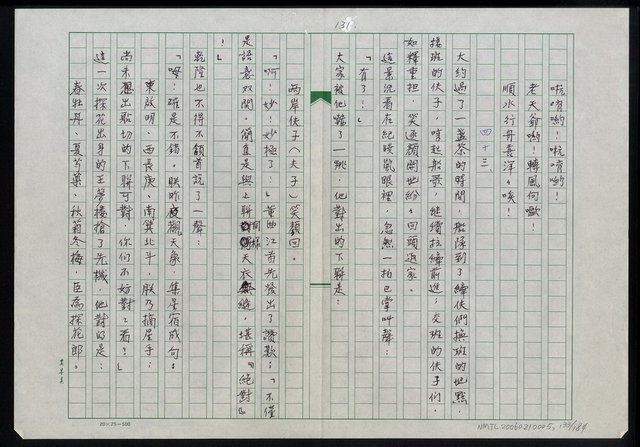 131.
哼唷喲!哼唷喲!
老天爺喲!轉風向歟!
順水行舟喜洋々唉!
四十三、
大約過了一盞茶的時間,船隊到了縴伕們換班的地點,
接班的伕子,嗨起船歌,繼續拉縴前進;交班的伕子們,
如釋重担,笑逐顏開地紛々回頭返家。
這景況看在紀曉嵐眼裡,忽然一拍巴掌叫聲:
「有了!」
大家被他嚇了一跳,他對出的下聯是:
兩岸伕子(夫子)笑顏回。
「啊!妙!妙極了!」董曲江首先發出了讚歎:「不僅
是語意双関,簡直是與上聯同樣天衣無縫,堪稱『絕對』
!」
乾隆也不得不頷首說了一聲:
「嗯!確是不錯。朕昨夜觀天象,集星宿成句:
東啟明,西長庚,南箕北斗,朕乃摘星手;
尚未想出貼切的下聯可對,你們不妨對々看!」
這一次探花出身的王夢樓搶了先機,他對的是:
春牡丹,夏芍藥,秋菊冬梅,臣為探花郎。
20×25=500
NMTL20060210005,133/184